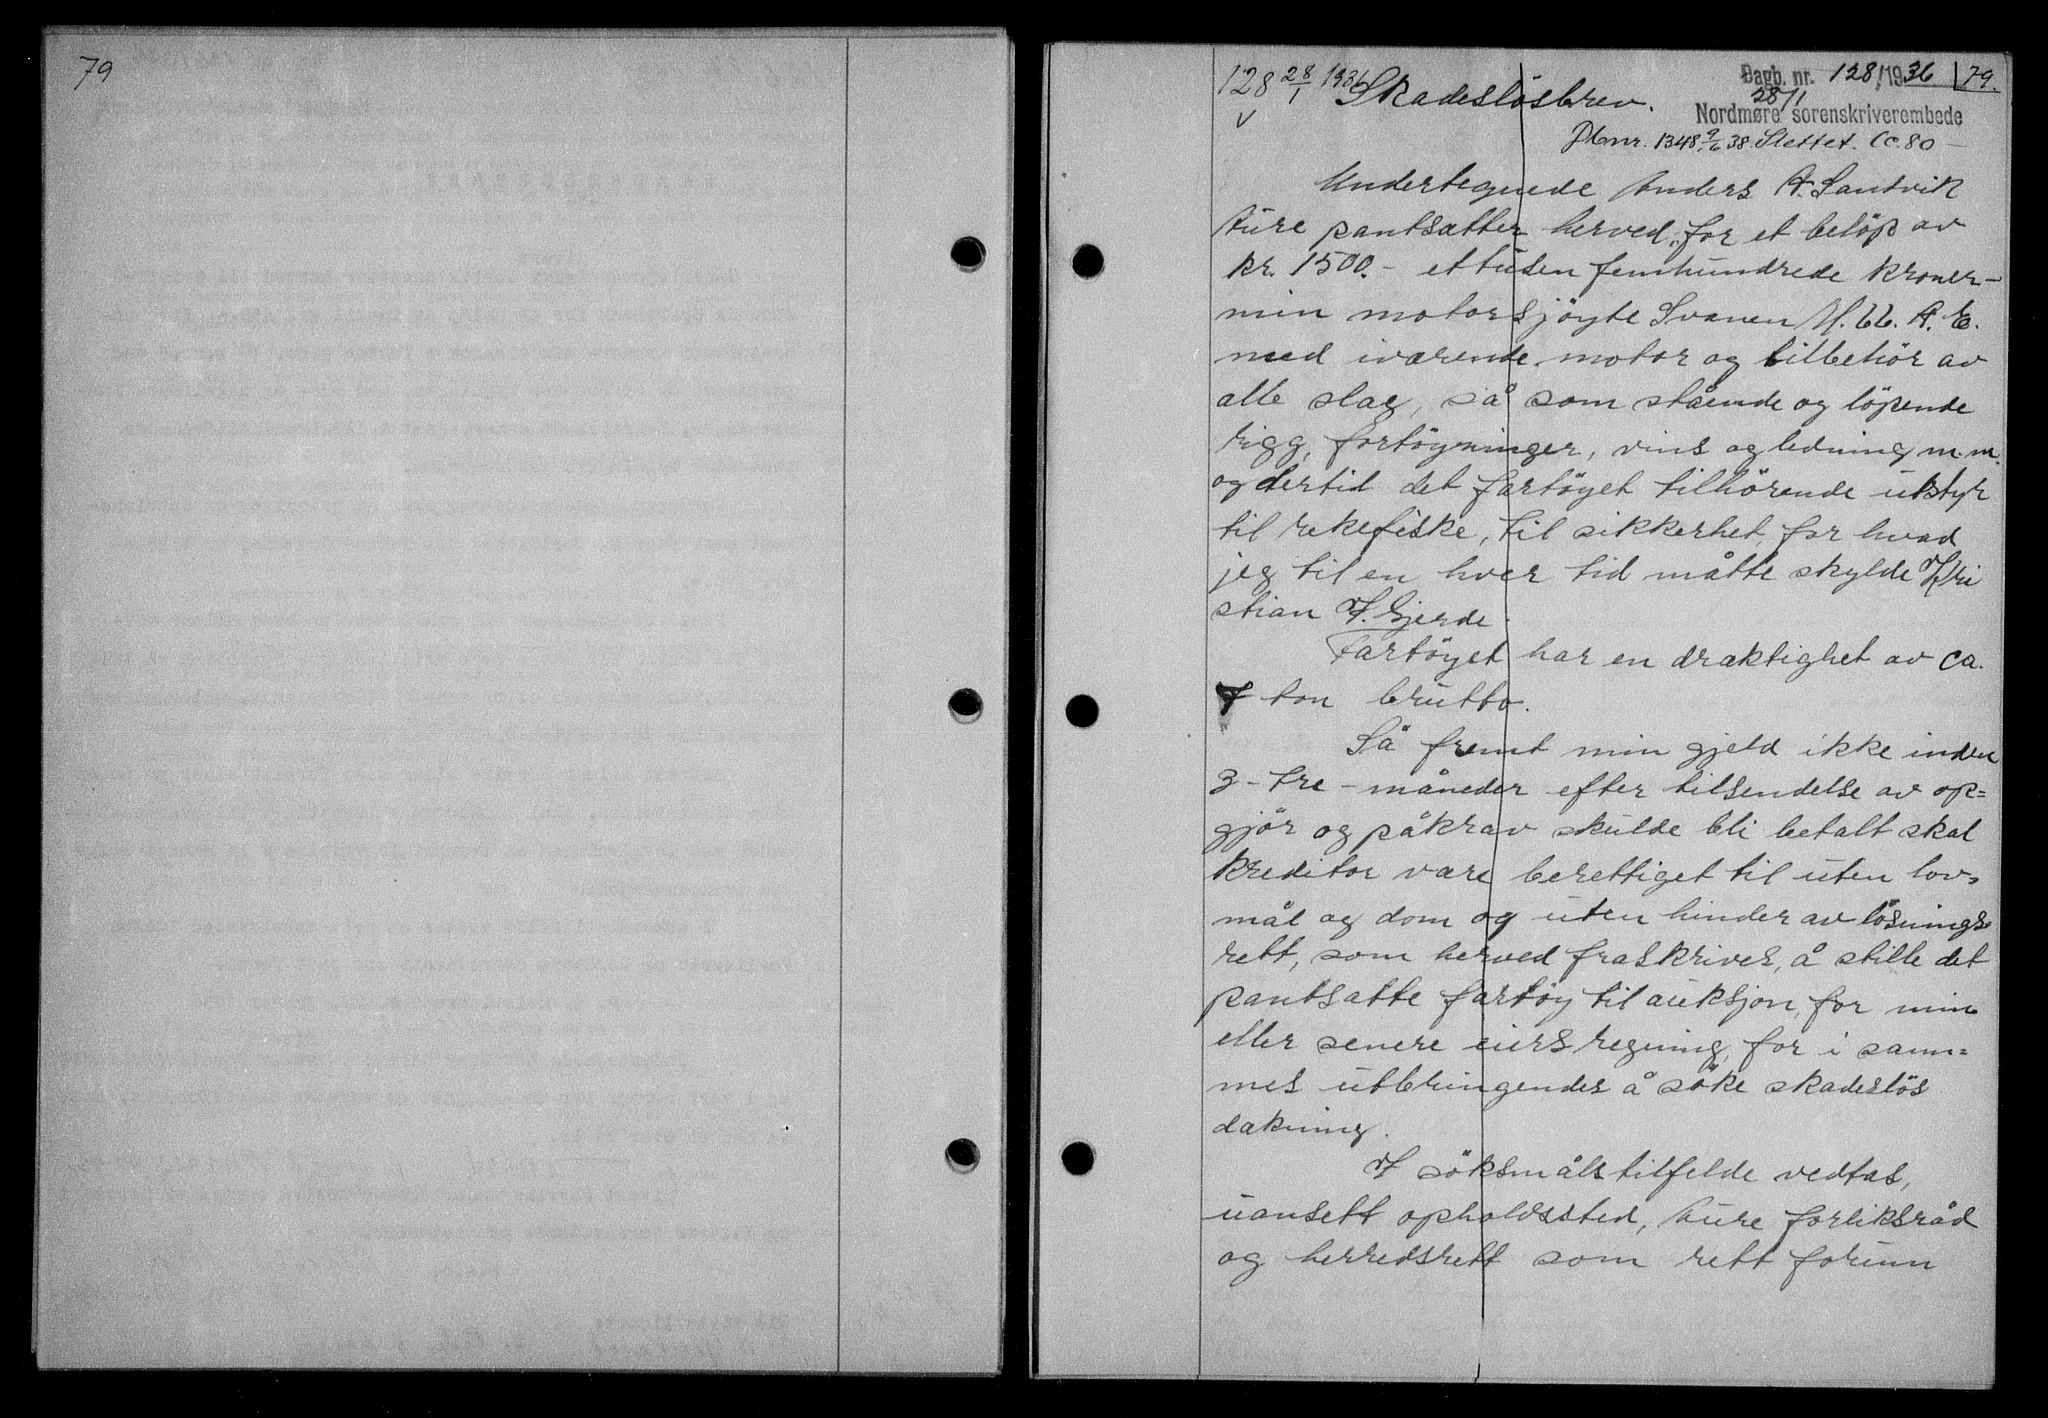 79
128 28/1 1936 Skadesløsbrev.
Dagb. nr. 128/1936 79.
28/1
Nordmøre sorenskriverembede
Dbnr. 1348 9/6 38. Slettet. Cc. 80 -
Undertegnede Anders A. Santvik
Aure pantsætter herved, for et beløp av
kr. 1500.- ettusen femhundrede kroner-
min motorsjøyte Svanen M. 66. A. E.
med iværende motor og tilbehör av
alle slag, så som stående og löpende
rigg, fortöyninger, vins og ledning m. m.
og dertil det fartöyet tilhörende utstyr
til rekefiske, til sikkerhet for hvad
jeg til en hver tid måtte skylde Kri
stian J. Gjerde.
Fartöyet har en dræktighet av ca.
7 ton brutto.
Så fremt min gjeld ikke inden
3 - tre - måneder efter tilsendelse av op=
gjör og påkrav skulde bli betalt skal
kreditor være berettiget til uten lov=
mål og dom og uten hinder av lösnings=
rett, som herved fraskrives, å stille det
pantsatte fartöy til auksjon, for min
eller senere eiers regning, for i sam=
mes utbringendes å söke skadeslös
dækning.
I söksmåls tilfelde vedtas,
uansett opholdssted, Aure forliksråd
og herredsrett som rett forum